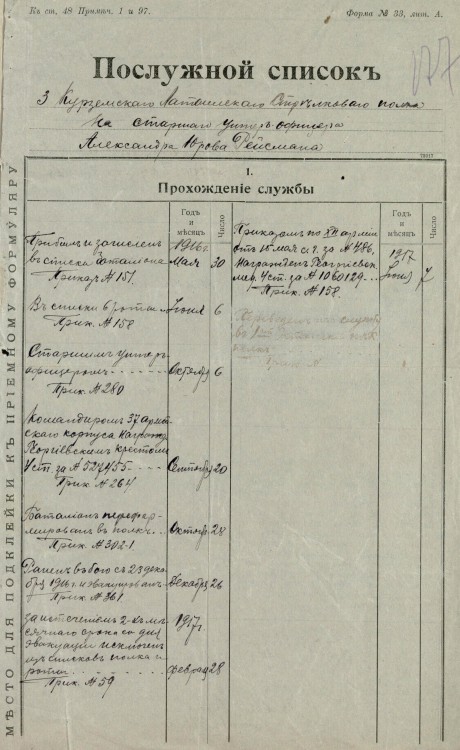 Къ ст. 48 Примѣч. 1 и 97.
Форма № 33, лит. А.
177
Послужной списокъ
3 Курземскаго Латышскаго Стрѣлковаго полка
На старшаго унтеръ-офицера
Александра Юрова Рейсмана
МѢСТО ДЛЯ ПОДКЛЕЙКИ КЪ ПРІЕМНОМУ ФОРМУЛЯРУ
I.
Прохожденіе службы
Годъ и мѣсяцъ
Число
Годъ и мѣсяцъ
Число
Прибылъ и зачисленъ
въ списки баталіона
Приказ № 151.
1916г.
Мая 30
Въ списки 2 роты
Прик. № 158
Іюня 6
Старшимъ унтеръ-
офицеромъ
Прик № 280
Октябр 6
Командиромъ 37 армей-
скаго корпуса награжд.
Георгіевскимъ крестомъ
4 ст. за № 527455
Прик № 264
Сентябр 20
Баталіонъ перефор-
мированъ въ полкъ
Прик. № 302-1
Октябр. 28
Раненъ въ бою съ 23 дека-
бря 1916г. и эвакуированъ
Прик № 361
Декабря 26
За истеченіемъ 2-хъ мѣ-
сячнаго срока со дня
эвакуаціи исключенъ
изъ списковъ полка и
роты
Прик. № 59
1917г.
Феврал 28
Приказомъ по XII арміи
отъ 15 мая с.г. за № 486,
Награжденъ Георгіевск.
мед. 4 ст. за № 1060129
Прик. № 158.
1917
Іюня 7